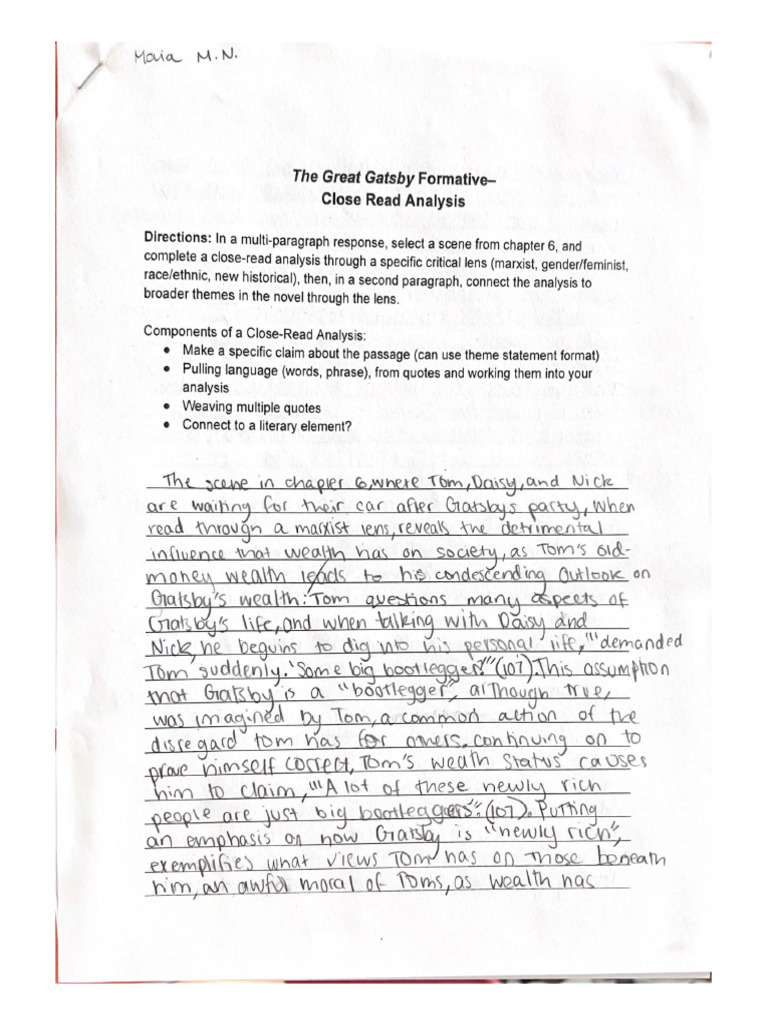 Maia M.N.
The Great Gatsby Formative–
Close Read Analysis
Directions: In a multi-paragraph response, select a scene from chapter 6, and
complete a close-read analysis through a specific critical lens (marxist, gender/feminist,
race/ethnic, new historical), then, in a second paragraph, connect the analysis to
broader themes in the novel through the lens.
Components of a Close-Read Analysis:
• Make a specific claim about the passage (can use theme statement format)
• Pulling language (words, phrase), from quotes and working them into your
analysis
• Weaving multiple quotes
• Connect to a literary element?
The scene in chapter 6, where Tom, Daisy, and Nick
are waiting for their car after Gatsby's party, when
read through a marxist lens, reveals the detrimental
influence that wealth has on society, as Tom's old-
money wealth leads to his condescending outlook on
Gatsby's wealth. Tom questions many aspects of
Gatsby's life, and when talking with Daisy and
Nick, he beguins to dig into his personal life, "'demanded
Tom suddenly. 'Some big bootlegger?'" (107). This assumption
that Gatsby is a "bootlegger", although true,
was imagined by Tom, a common action of the
disregard Tom has for others. Continuing on to
prove himself correct, Tom's weath status causes
him to claim, "'A lot of these newly rich
people are just big bootleggers'". (107). Putting
an emphasis on how Gatsby is "newly rich",
exemplifies what views Tom has on those beneath
him, an awful moral of Toms, as wealth has